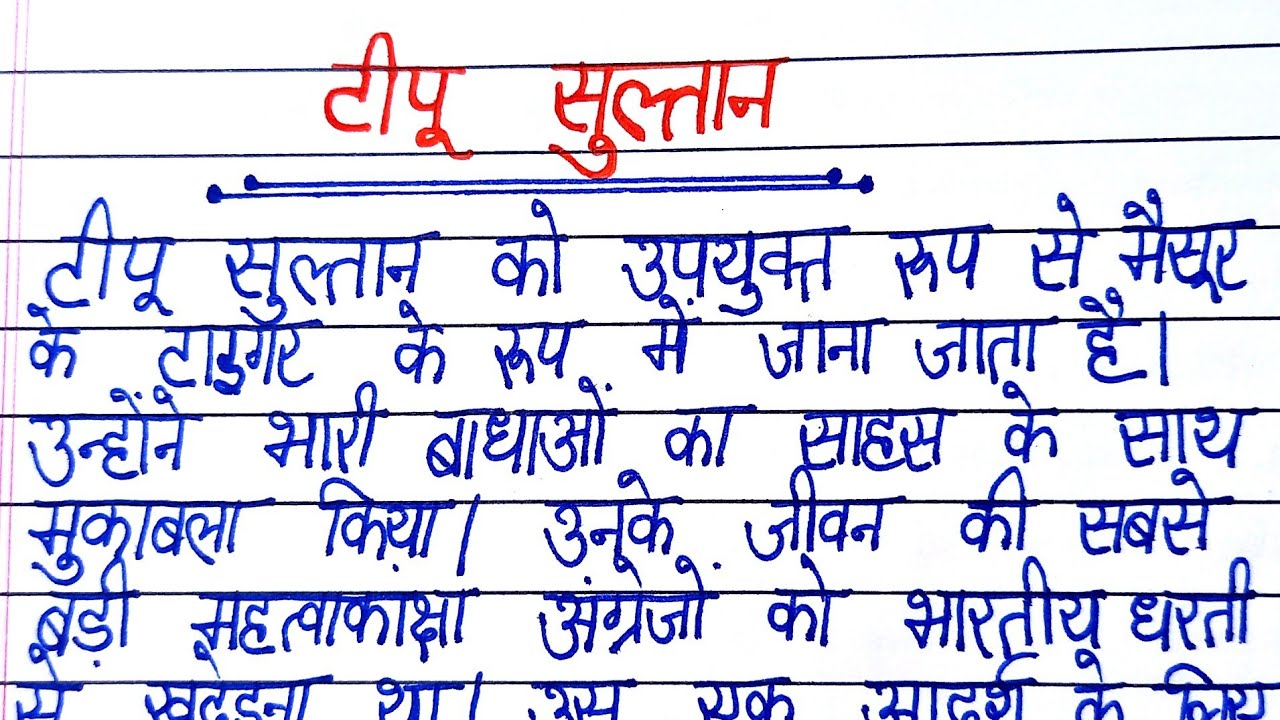 टीपू सुल्तान
टीपू सुल्तान को उपयुक्त रूप से मैसूर
के टाइगर के रूप में जाना जाता है।
उन्होंने भारी बाधाओं का साहस के साथ
मुकाबला किया। उनके जीवन की सबसे
बड़ी महत्वाकांक्षा अंग्रेजों को भारतीय धरती
से खदेड़ना था। इस एक आदर्श के लिए